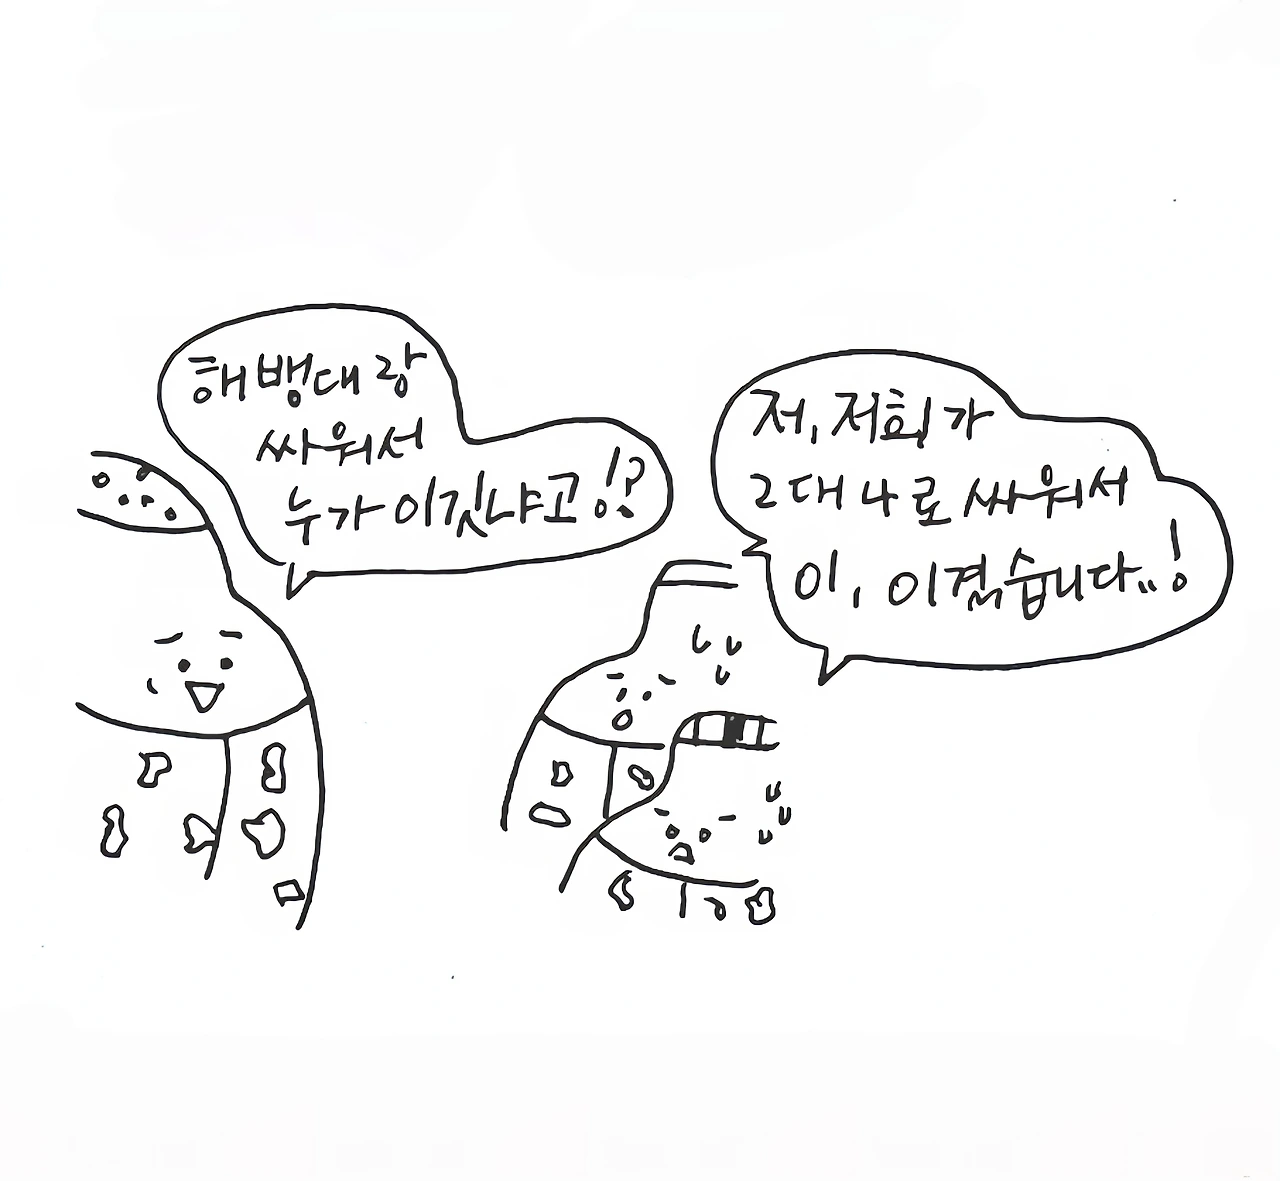 해병대랑
싸워서
누가 이깃냐고!?
저, 저희가
2대 4로 싸워서
이, 이겼습니다..!